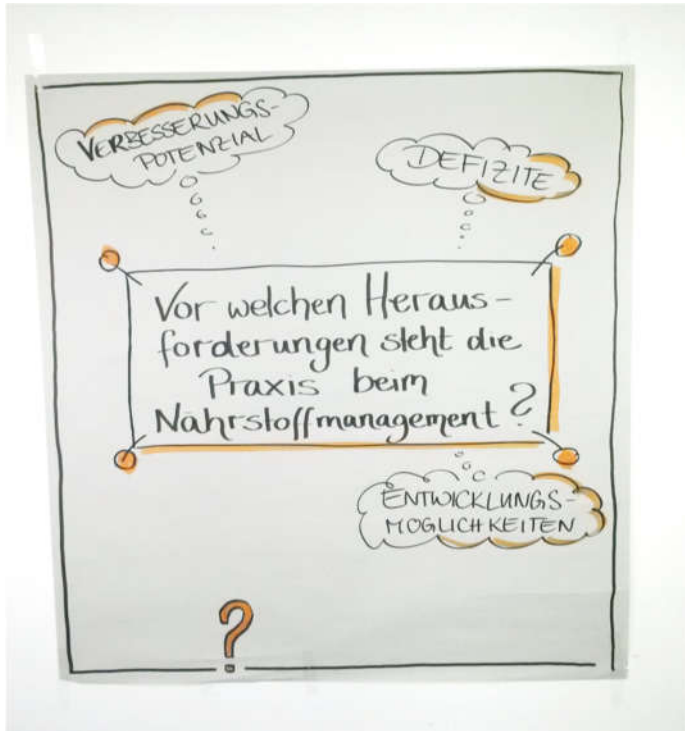 VERBESSERUNGS-
POTENZIAL
DEFIZITE
Vor welchen Heraus-
forderungen steht die
Praxis beim
Nährstoffmanagement?
ENTWICKLUNGS-
MÖGLICHKEITEN
?